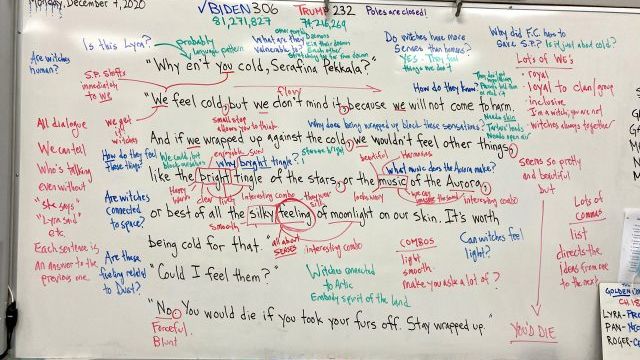 Monday, December 7, 2020
√BIDEN 306
81,271,827
TRUMP 232
74,216,269
Poles are closed!
Is this Lyra?
probably
language pattern
What are they
vulnerable to?
Do witches have more
senses than humans?
YES. They feel
things we don't
Why did F.C. have to
save S.P.? Is it just about cold?
Are witches
human?
"Why en't you cold, Serafina Pekkala?"
How do they know?
Lots of We's
· royal
· loyal to clan/group
· inclusive
I'm a witch, you're not
witches always together
S.P. shifts
immediately
to we
flovy
"We feel cold, but we don't mind it, because we will not come to harm.
we get it
witches
small stop
allows you to think
Why does being wrapped up block these sensations?
Needs skin
Tartars' heads
Needs open air
All dialogue
We can tell
Who's talking
even without
"she says"
"Lyra said"
etc.
And if we wrapped up against the cold, we wouldn't feel other things,
How do they feel
these things?
We could, but
enjoyable, sual
why bright tingle?
beautiful
Harmonious
What music does the Aurora make?
seems so pretty
and beautiful
but
like the bright tingle of the stars, or the music of the Aurora,
Are witches
connected
to space?
clear
lively
Smooth
interesting combo
interesting combo
or best of all the silky feeling of moonlight on our skin. It's worth
Lots of
commas
list
directs the
Ideas from one
to the next
Each sentence is
an answer to the
previous one.
Are these
feeling related
to Dust?
being cold for that."
all about
SENSES
interesting combo
COMBOS
light
smooth
make you ask a lot of ?
Can witches feel
light?
"Could I feel them?"
Witches connected
to Artic
Embody spirit of the land
"No. You would die if you took your furs off. Stay wrapped up."
Forceful
Blunt
YOU'D DIE
GOLDEN
CH.18
LYRA-FRO
PAN-NE
ROGER-C